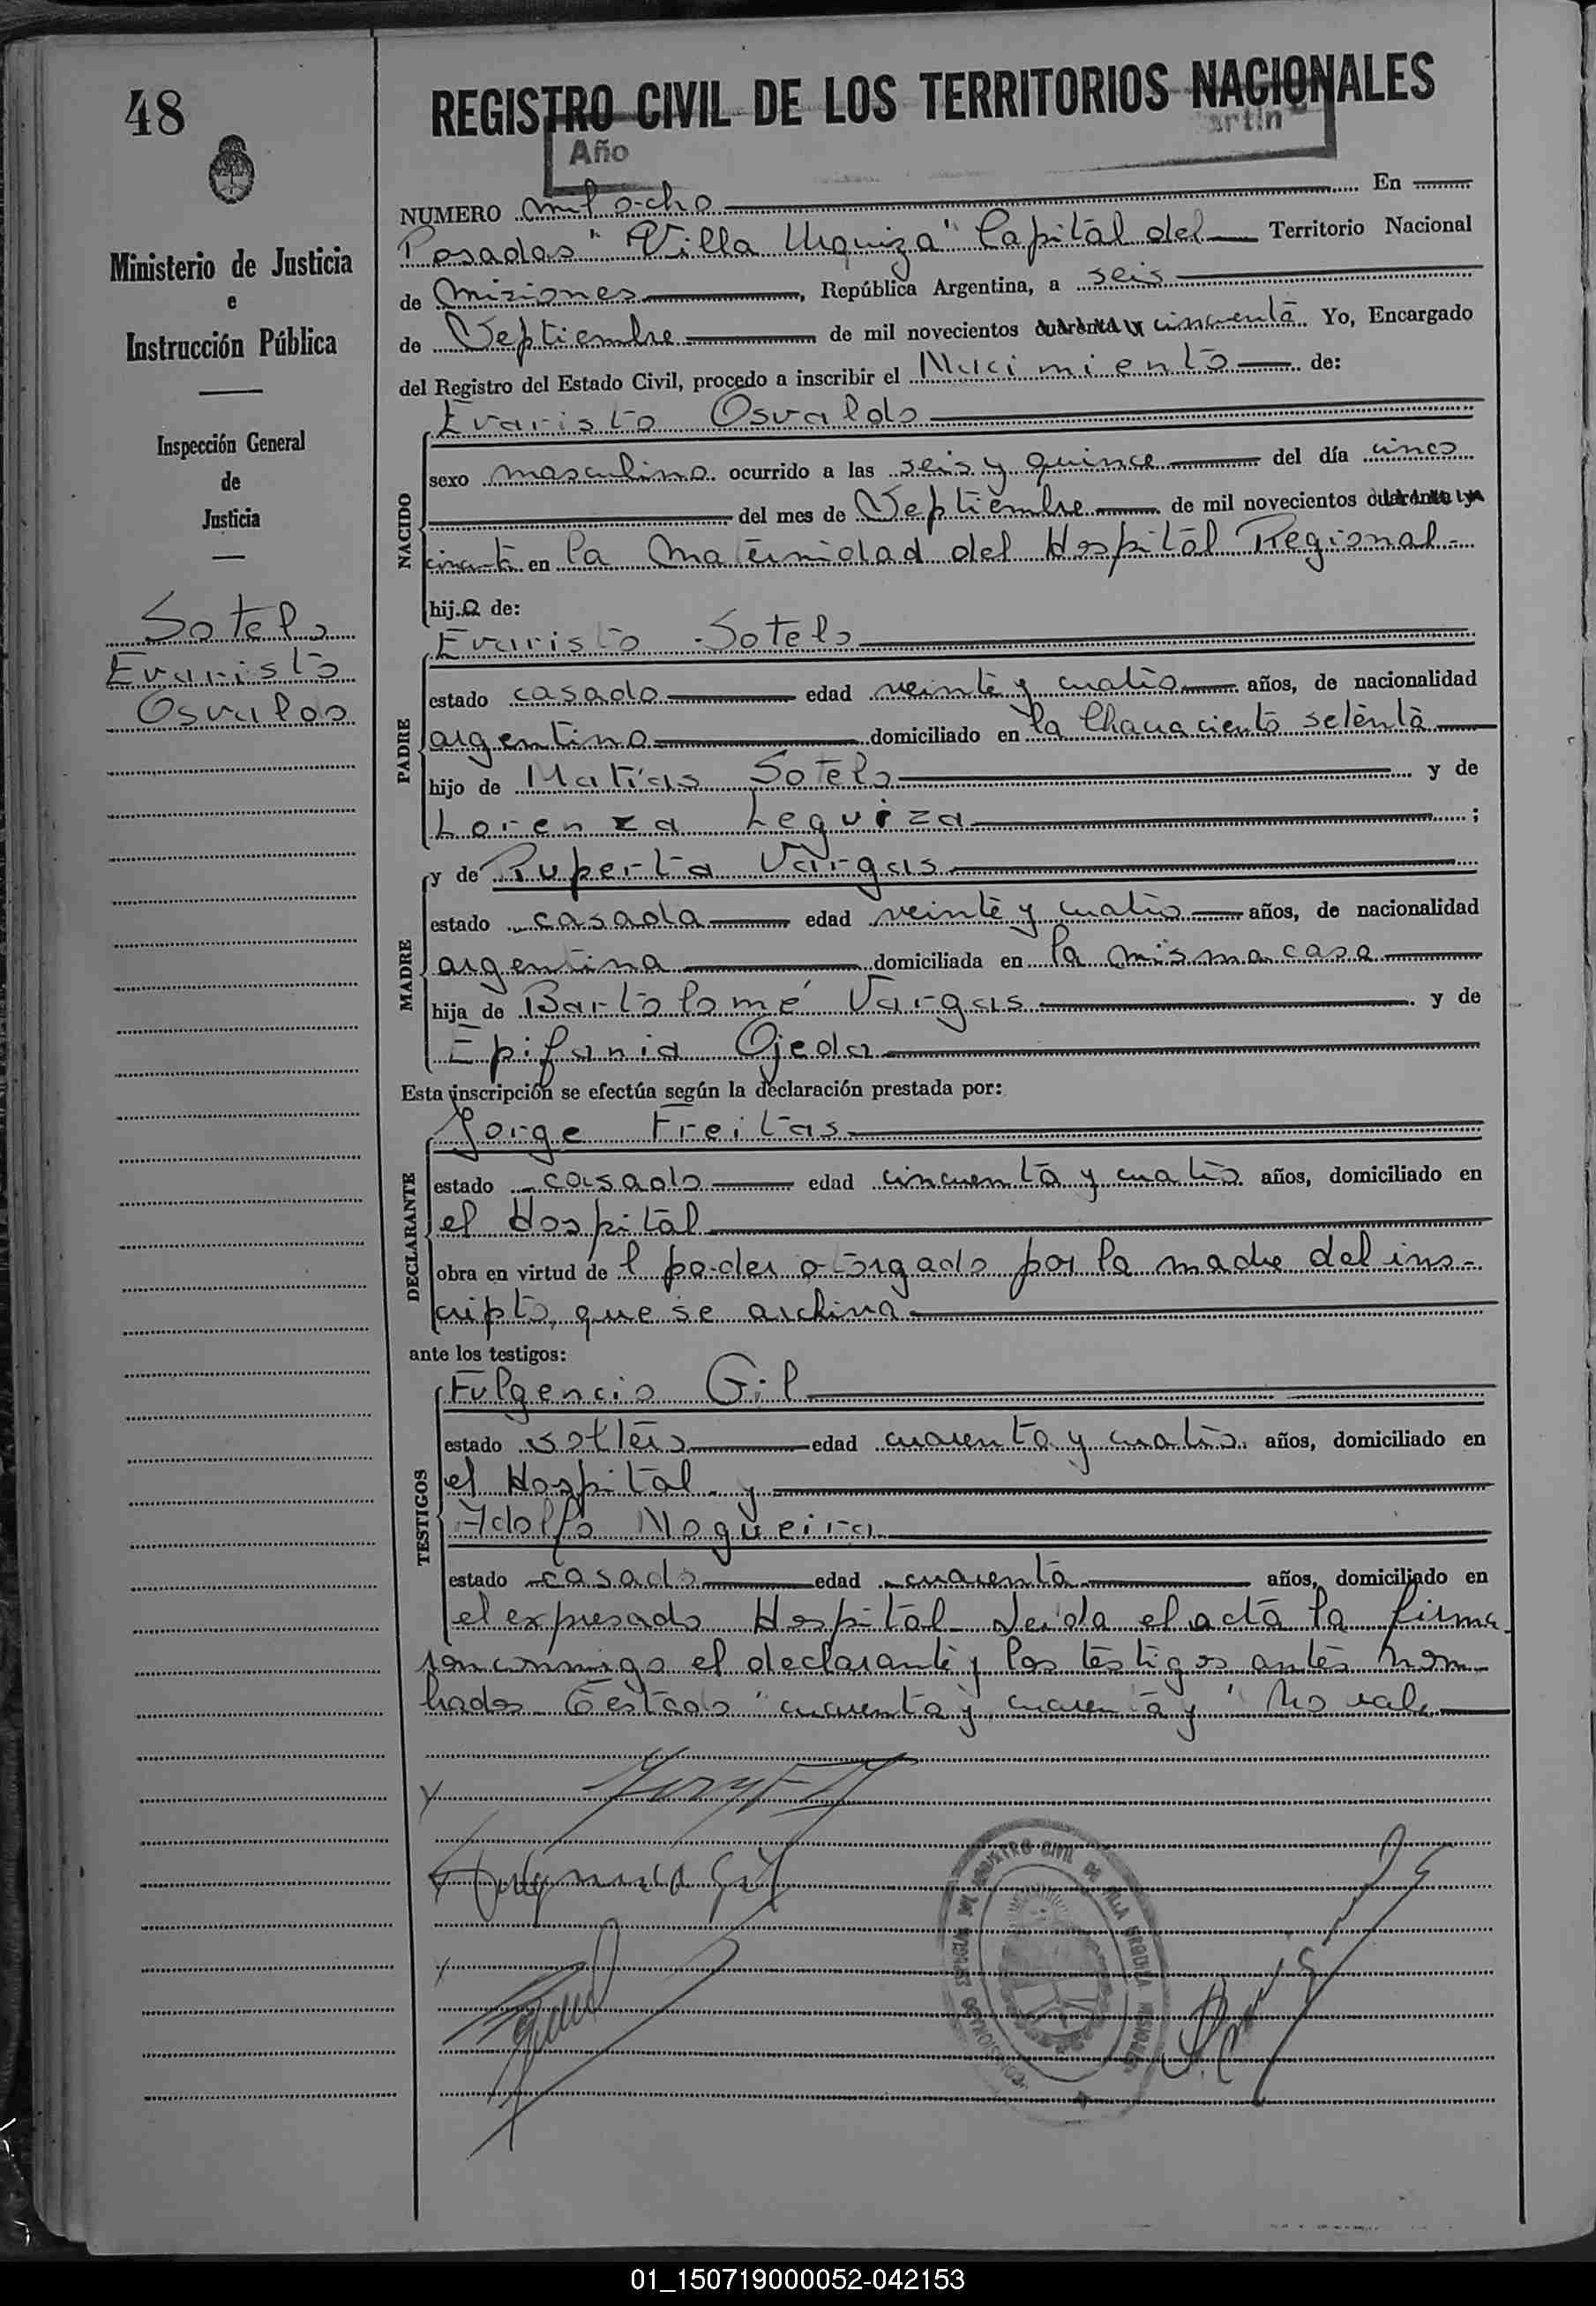 48
REGISTRO CIVIL DE LOS TERRITORIOS NACIONALES
Año
artin
Ministerio de Justicia
e
Instrucción Pública
Inspección General
de
Justicia
Sotelo
Evaristo
Osvaldo
NUMERO mil ocho En
Posadas "Villa Urquiza" Capital del Territorio Nacional
de Misiones, República Argentina, a seis
de Septiembre de mil novecientos cuarenta y cincuenta. Yo, Encargado
del Registro del Estado Civil, procedo a inscribir el Nacimiento de:
NACIDO
Evaristo Osvaldo
sexo masculino ocurrido a las seis y quince del día cinco
del mes de Septiembre de mil novecientos cuarenta y
cincuenta en la Maternidad del Hospital Regional.
hijo de:
PADRE
Evaristo Sotelo
estado casado edad veinte y cuatro años, de nacionalidad
argentino domiciliado en la Chacra ciento setenta
hijo de Matías Sotelo y de
Lorenza Leguiza ;
MADRE
y de Ruperta Vargas
estado casada edad veinte y cuatro años, de nacionalidad
argentina domiciliada en la misma casa
hija de Bartolomé Vargas y de
Epifania Ojeda
Esta inscripción se efectúa según la declaración prestada por:
DECLARANTE
Jorge Freitas
estado casado edad cincuenta y cuatro años, domiciliado en
el Hospital
obra en virtud del poder otorgado por la madre del ins-
cripto, que se archiva
ante los testigos:
TESTIGOS
Fulgencio Gil
estado soltero edad cuarenta y cuatro años, domiciliado en
el Hospital y
Adolfo Nogueira
estado casado edad cuarenta años, domiciliado en
el expresado Hospital. Leida el acta la firma-
ron conmigo el declarante y los testigos antes nom-
brados. Testado "cuarenta y cuarenta y" No vale
Fulgencio Gil
REGISTRO CIVIL DE VILLA URQUIZA MISIONES
01_150719000052-042153